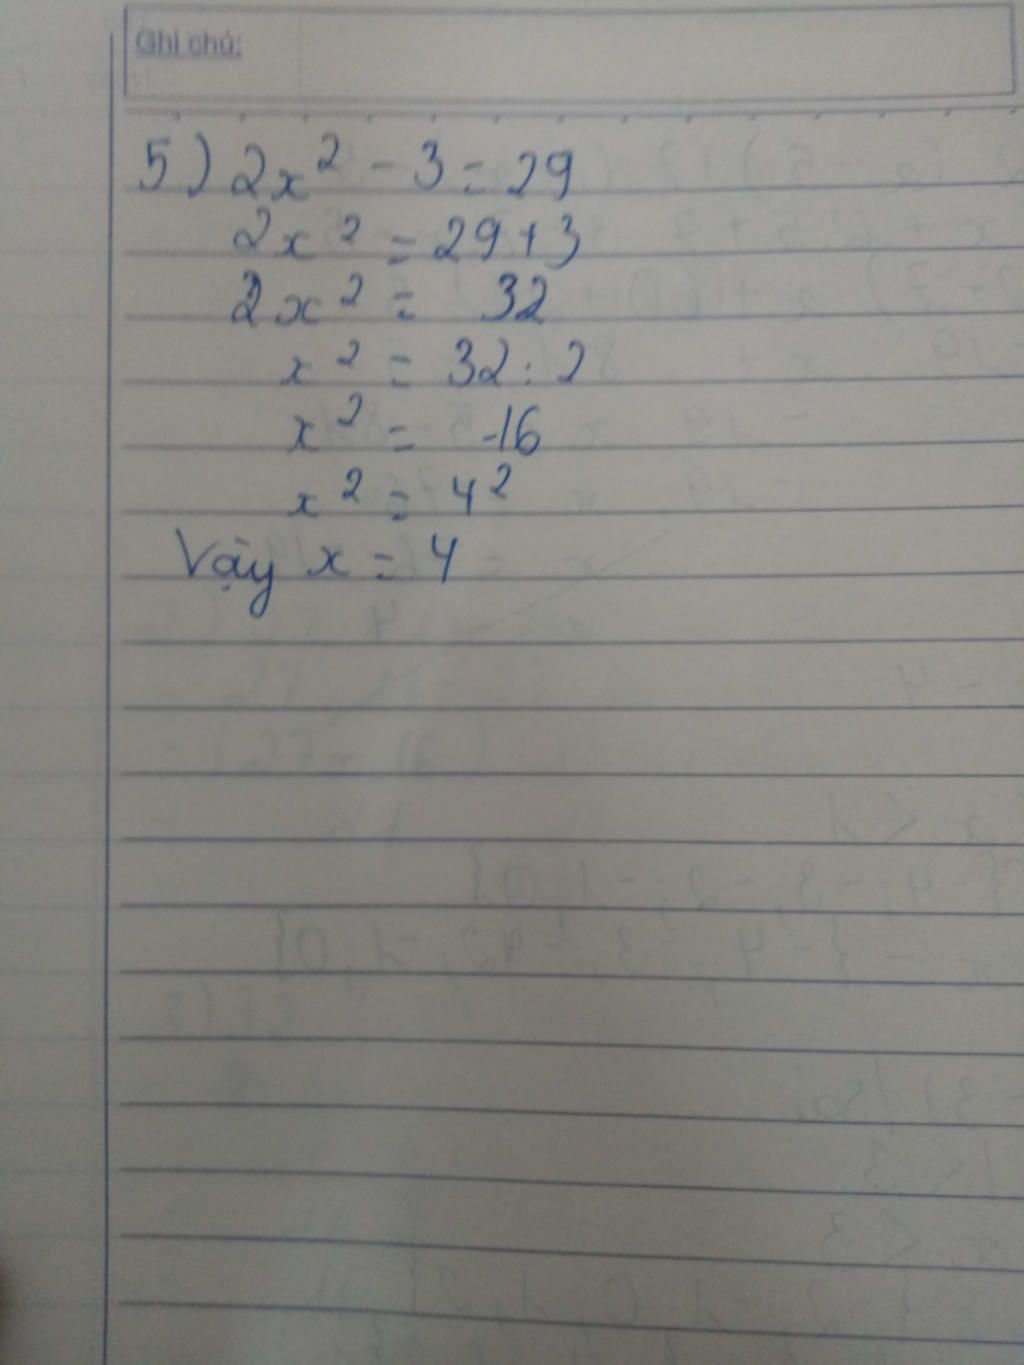 Ghi chú:
5) 2x² - 3 = 29
2x² = 29+3
2x² = 32
x² = 32 : 2
x² = 16
x² = 4²
Vậy x = 4